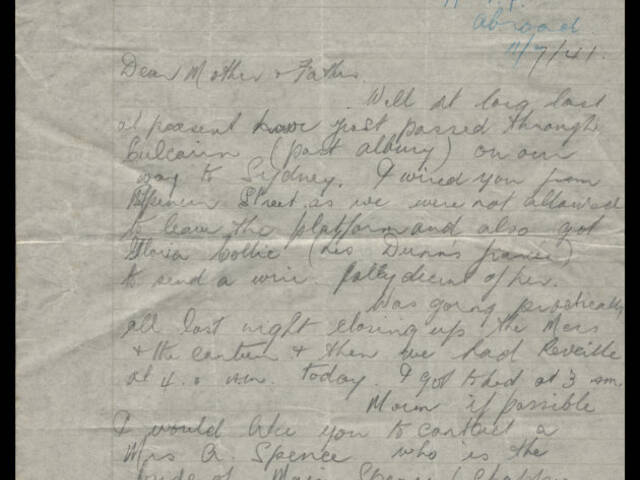 Abroad
11/7/41.
Dear Mother & Father.
Well at long last
at present have just passed through
Culcairn (past albury) on our
way to Sydney. I wired you from
Spencer Street as we were not allowed
to leave the platform and also got
Gloria Collie (Les Dunn's fiancé)
to send a wire. Jolly decent of her.
Was going practically
all last night closing up the Mess
& the canteen & then we had Reveille
at 4.0 a.m. today. I got to bed at 3 am
Mum if possible
I would like you to contact a
Mrs A. Spence who is the
bride of Major Spence (Chaplain